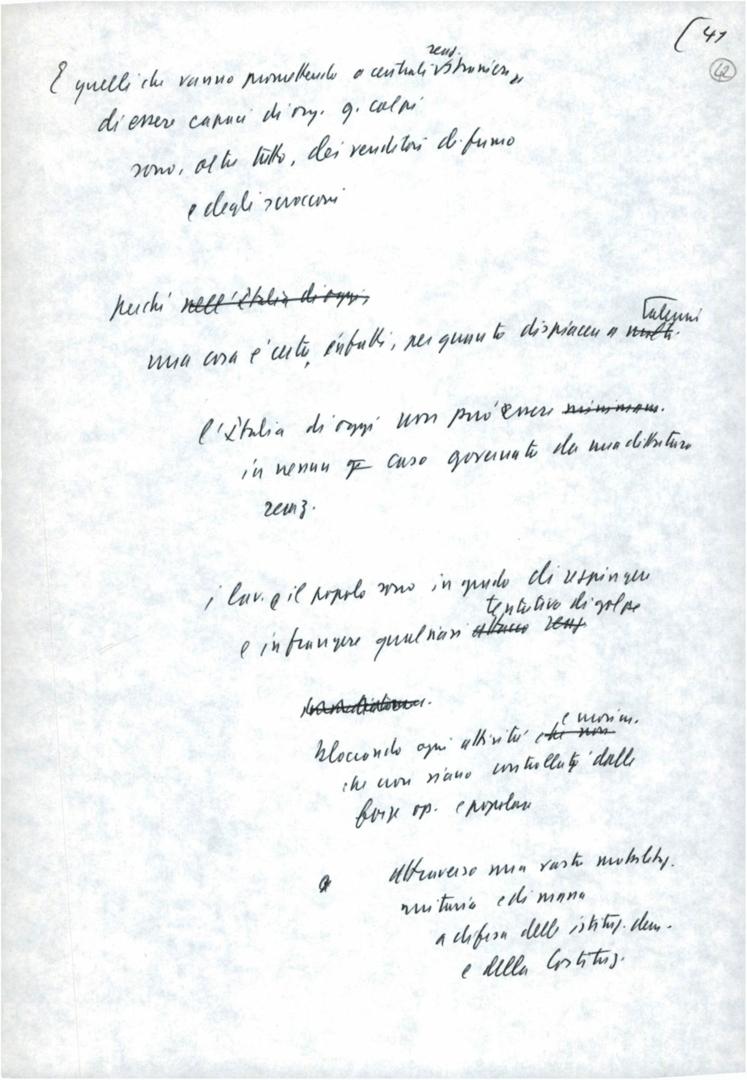 [41
42
reaz.
E quelli che vanno promettendo a centrali straniere
di essere capaci di org. q. colpi
sono, oltre tutto, dei venditori di fumo
e degli scrocconi
perché nell'Italia di oggi,
taluni
una cosa è certa, infatti, per quanto dispiaccia a molti.
l'Italia di oggi non può essere
in nessun caso governata da una dittatura
reaz.
i lav. e il popolo sono in grado di respingere
tentativo di golpe
e infrangere qualsiasi attacco reaz.
e movim.
bloccando ogni attività che non
che non siano controllate dalle
forze op. e popolari
attraverso una vasta mobilitaz.
unitaria e di massa
a difesa delle istituz. dem.
e della Costituz.